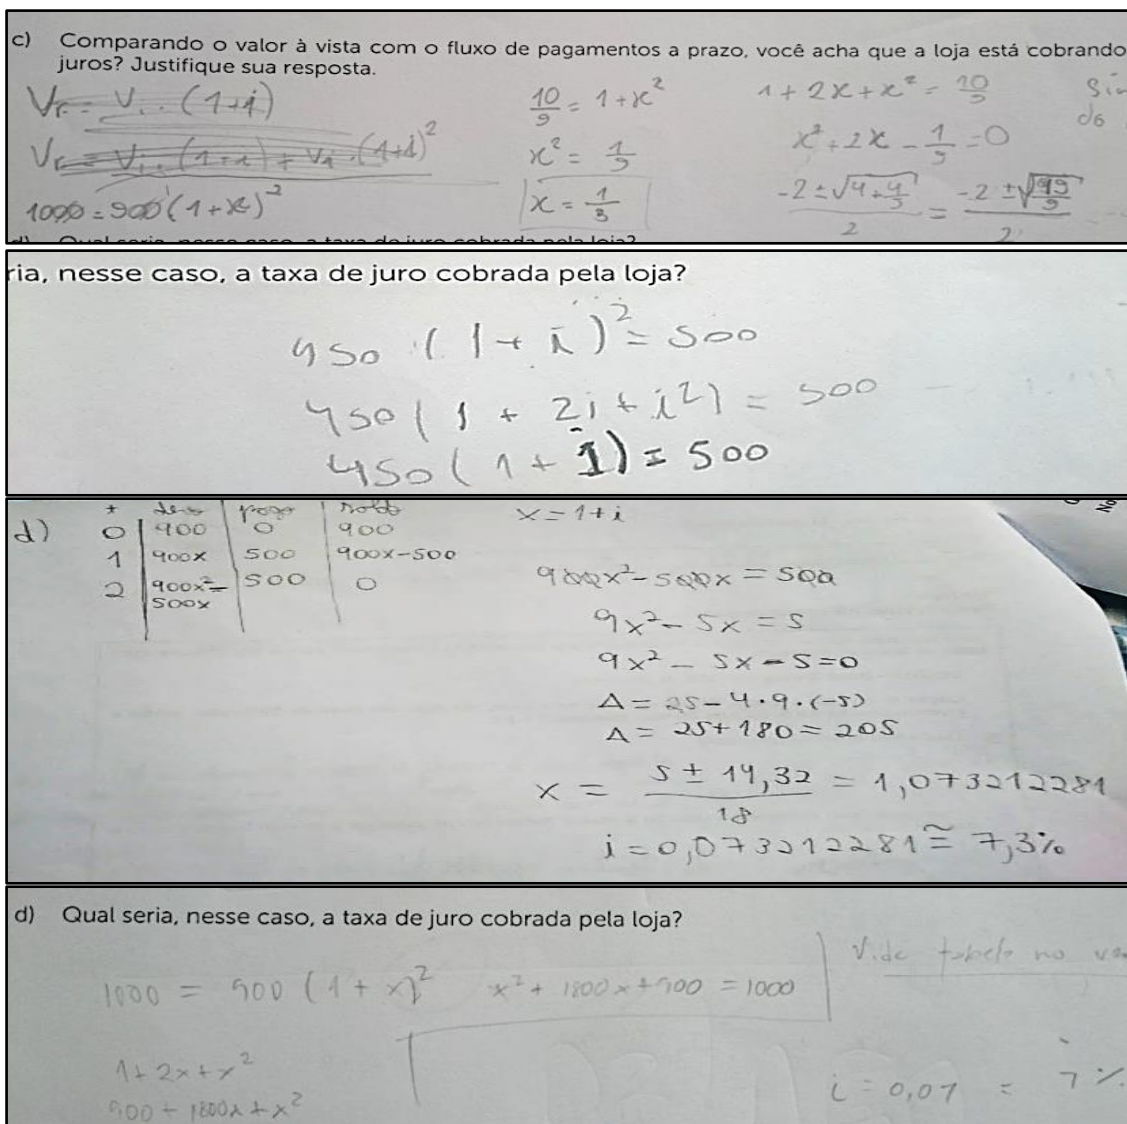 c) Comparando o valor à vista com o fluxo de pagamentos a prazo, você acha que a loja está cobrando
juros? Justifique sua resposta.
Vr = V . (1+i)
1000 = 900 (1+x)²
10/9 = 1+x²
x² = 1/9
x = 1/3
1+2x+x² = 10/9
x²+2x - 1/9 = 0
-2 ± √4+4/9 / 2 = -2 ± √ 9 / 2
d) Qual seria, nesse caso, a taxa de juro cobrada pela loja?
ria, nesse caso, a taxa de juro cobrada pela loja?
450 (1 + i)² = 500
450 (1 + 2i + i²) = 500
450 (1 + 1) = 500
d)
0 900 0 900
1 900x 500 900x-500
2 900x²-500x 500 0
x = 1+i
900x²-500x = 500
9x² - 5x = 5
9x² - 5x - 5 = 0
Δ = 25 - 4.9.(-5)
Δ = 25+180 = 205
x = 5 ± 14,32 / 18 = 1,073212281
i = 0,073212281 ≅ 7,3%
d) Qual seria, nesse caso, a taxa de juro cobrada pela loja?
1000 = 900 (1 + x)² x² + 1800x + 900 = 1000
1+2x+x²
900 + 1800x + x²
Vide tabela no
i = 0,07 = 7%